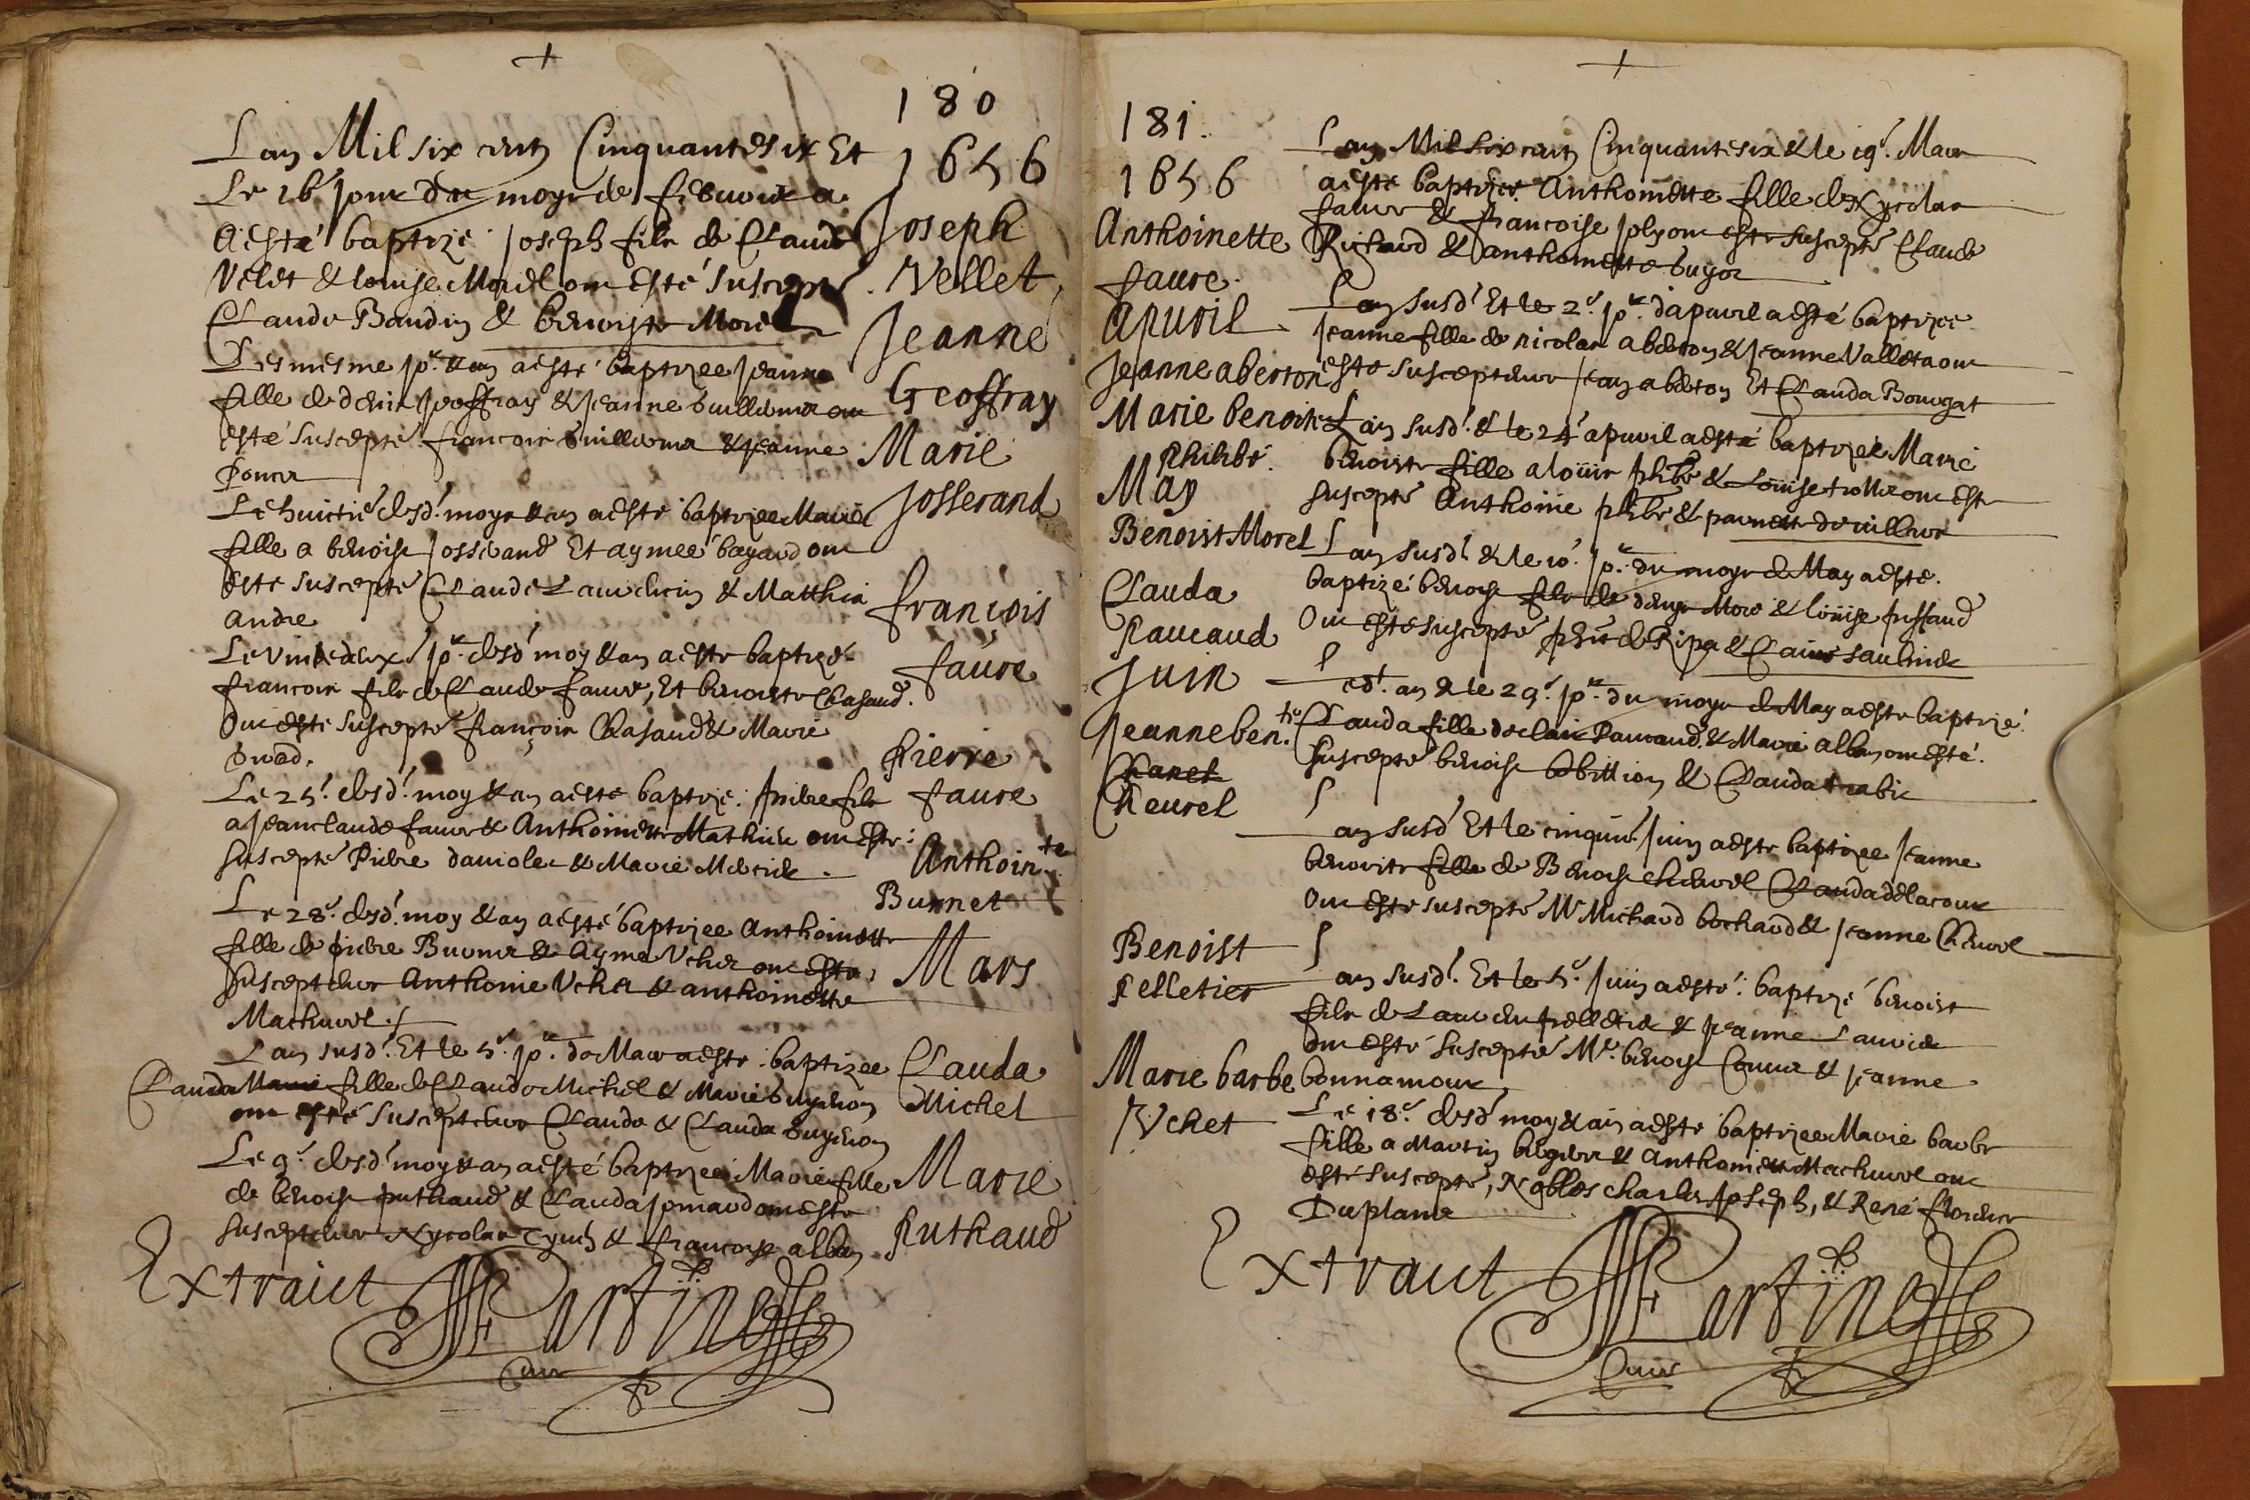 180
1656
Lan Mil six cents Cinquantesix Et
Le 16e jour du moys de febvrier a
Aesté baptizé joseph filz de Claude
Velet & louise Morel ont esté suscepte
Claude Baudin & benoiste Morel
Joseph
Vellet
Les mesme jor. & an aesté baptizee jeanne
fille de denis jeoffray & jeanne Guillermet ont
esté suscepte francois Guillermet & jeanne
Poncet
Jeanne
Geoffray
Le huictie dusd. moys & an aesté baptizee Marie
fille a benoist josserand Et aymee bayard ont
esté suscepte Claude Laurencin & Matthie
Andre
Marie
Josserand
Le vintedeux jor. dusd moy & an aeste baptizé
francois filz de Claude faure, Et benoiste Chasaud.
Ont esté suscepte françois Chasaud & Marie
francois
faure
Le 25e. dusd. moy & an aeste baptize. pierre filz
a jeanclaude faure & Anthoinette Mathieu ont esté
suscepte Pierre daviolet & Marie Mercier.
Pierre
faure
Le 28e. dusd. moy & an aesté baptizee Anthoinette
fille de pierre Burnet & Ayma Uchet ont esté
suscepteur Anthoine Uchet & anthoinette
Machurel./
Anthointe.
Burnet
Mars
Lan susd. Et le 5e. jor. de Mars aeste baptizee
Clauda Marie fille de Claude Michel & Marie Guyenon
ont esté suscepteur Claude & Clauda Guyenon
Clauda
Michel
Le 9e. dusd moy & an aesté baptizee Marie fille
de benoist puthaud & Clauda jomard ont este
suscepteur Nycolas & francoyse alban
Marie
Puthaud
Extraict Martinet
Curé
181.
1656
Lan Mil six cents Cinquantesix & le 19e. Mars
aesté baptizee Anthoinette fille de Nycolas
faure & francoise jolyon este suscepte Claude
Richard & anthoinette Guyot
Anthoinette
faure.
Apuril
Lan susd. Et le 2e. jor. dapuril aesté baptizee
jeanne fille de nicolas aberton & jeanne Valleta ont
esté suscepteur jean aberton Et Clauda Bourgat
Jeanne aberton
Lan susd. & le 24e apuril aesté baptizee Marie
benoiste fille a loüis philibé & Loüise trollier ont esté
suscepté Anthoine philbé & pernette devillars
Marie benoiste
Philibé.
May
Lan susd & le 10e. jor. du moys de May aesté.
baptizé benoist filz de denys Morel & loüise pussaud
Ont esté suscepté de Ripa & Claire saulnier
Benoist Morel
Led. an & le 29e. jor. du moys de May aeste baptizé
Clauda fille declair Paucaud & Marie alban ont esté.
suscepté benoist & Clauda trabit
Clauda
Paucaud
Juin
Lan susd Et le cinquie. juin aeste baptizee jeanne
benoiste fille de Benoist cheurel Clauda delacour
Ont esté suscepté Mr Michard bochard & jeanne Cheurel
Jeanne bente.
Chanel
Cheurel
Lan susd. Et le 5e. juin aesté: baptizé benoist
filz de Laurens pelletier & jeanne Laurier
ont esté suscepté Mr. benoist Conver & jeanne
bonnamour
Benoist
Pelletier
Le 18e. dusd moy & an aesté baptizee Marie barbe
fille a Martin & Anthoinette Machurel ont
esté suscepté, Nobles charles joseph, & René florence
Duplanet
Marie barbe
Uchet
Extraict Martinet
Curé